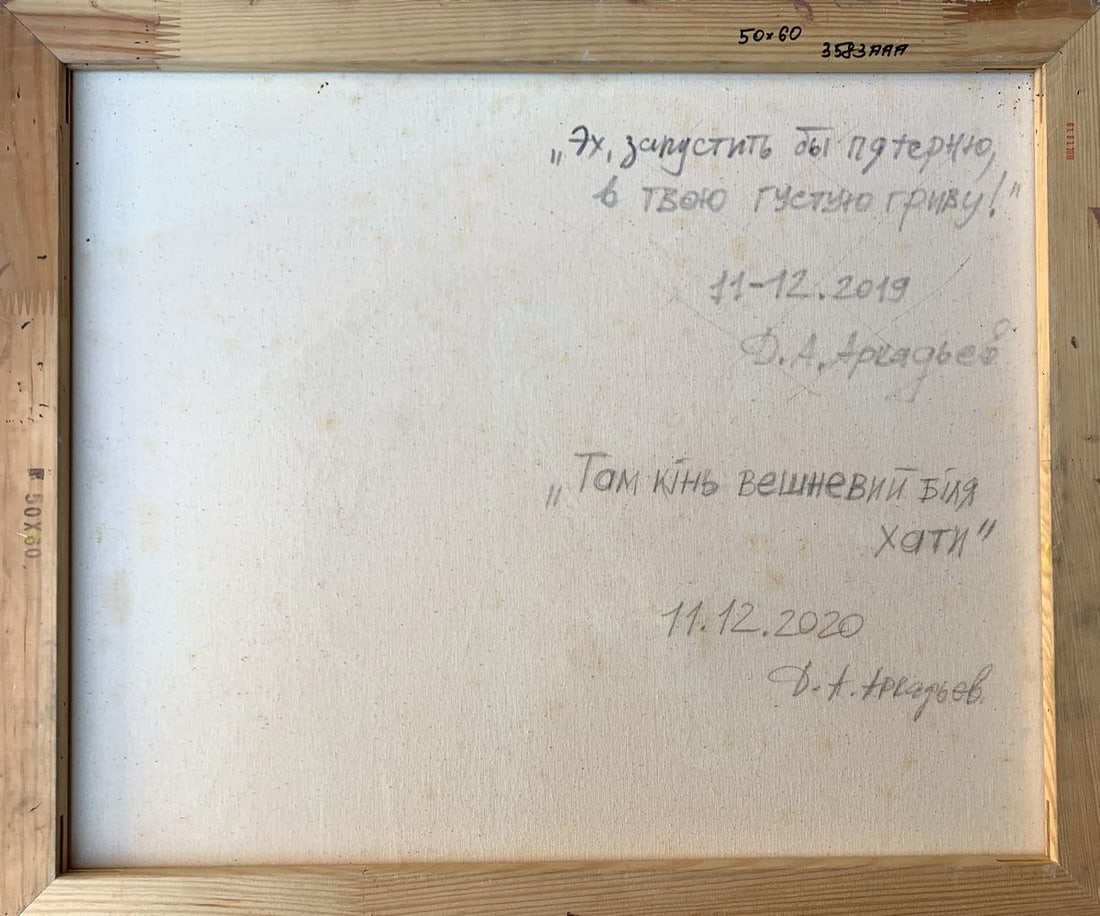 50×60
3583AAA
„Эх, запустить бы пятерню,
в твою густую гриву!"
11-12.2019
Д.А. Аркадьев
„Там кінь вешневий біля
хати"
11.12.2020
Д.А. Аркадьев.
50X60